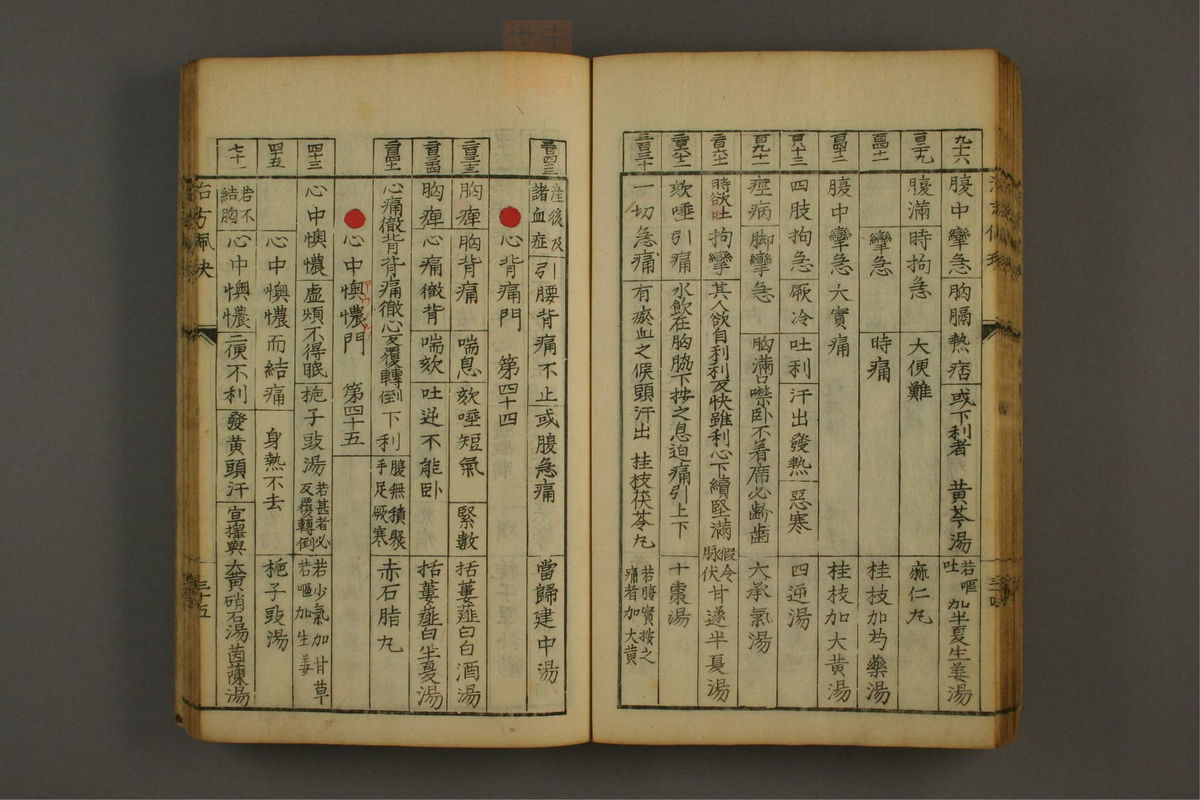 九十六 腹中攣急 胸膈熱痞 或下利者 黃芩湯 若嘔吐 加半夏生姜湯
腹滿時拘急 大便難 麻仁丸
攣急 時痛 桂枝加芍藥湯
腹中攣急 大實痛 桂枝加大黃湯
四肢拘急 厥冷吐利 汗出發熱 惡寒 四逆湯
痙病 脚攣急 胸滿口噤卧不着席必齘齒 大承氣湯
時欲吐拘攣 其人欲自利利反快雖利心下續堅滿 脉伏 甘遂半夏湯
欬唾引痛 水飲在胸脇下按之息迫痛引上下 十棗湯
一切急痛 有瘀血之候頭汗出 桂枝茯苓丸 若腹實按之痛者加大黃
三十四
產後及諸血症 引腰背痛不止 或腹急痛 當歸建中湯
心背痛門 第四十四
胸痺 胸背痛 喘息欬唾短氣 緊數 括蔞薤白白酒湯
胸痺 心痛徹背 喘欬 吐逆不能卧 括蔞薤白半夏湯
心痛徹背背痛徹心反覆轉倒 下利 腹無積聚手足厥寒 赤石脂丸
心中懊憹門 第四十五
四十三 心中懊憹 虛煩不得眠 梔子豉湯 若甚者必反覆轉倒 若少氣加甘草 若嘔加生姜
心中懊憹而結痛 身熱不去 梔子豉湯
七十一 若不結胸 心中懊憹二便不利 發黃頭汗 大黃硝石湯 茵蔯湯
三十五